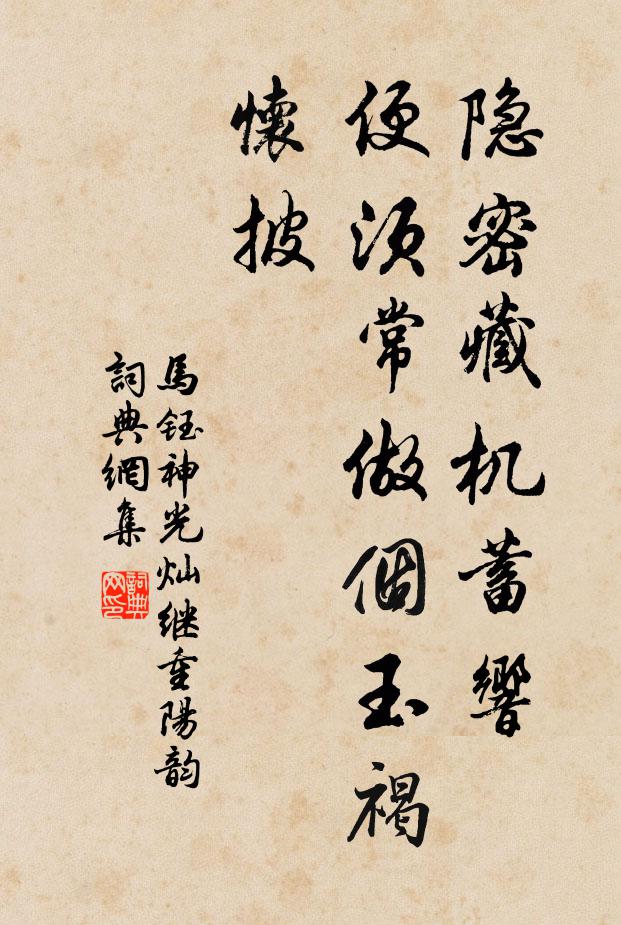 隐密藏机蓄響
便须常做個玉褐
懷披
馬钰神光灿继重陽韵
詞典網集
詞典网印